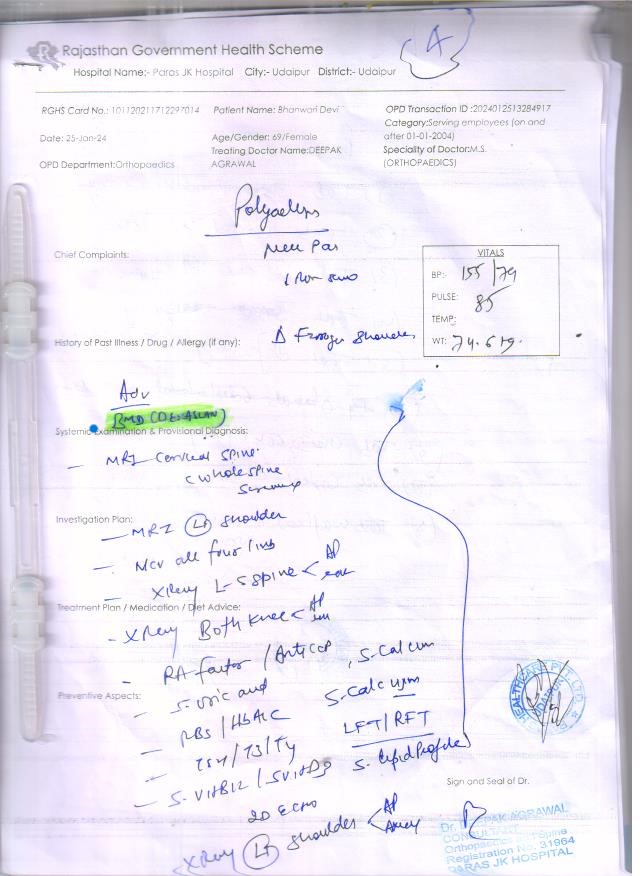 A
Rajasthan Government Health Scheme
Hospital Name:- Paras JK Hospital City:- Udaipur District:- Udaipur
RGHS Card No.: 101120211712297014 Patient Name: Bhanwari Devi OPD Transaction ID :2024012513284917
Category:Serving employees (on and after 01-01-2004)
Date: 25-Jan-24 Age/Gender: 69/Female
Treating Doctor Name:DEEPAK AGRAWAL
Speciality of Doctor:M.S. (ORTHOPAEDICS)
OPD Department:Orthopaedics
Chief Complaints:
VITALS
BP:- 155/79
PULSE: 85
TEMP:
WT: 74.6
History of Past Illness / Drug / Allergy (if any): Δ Shoulder
Adv
BMD
Systemic Examination & Provisional Diagnosis:
- MRI Cervical Spine
c whole spine
Investigation Plan:
- MRI Lt shoulder
- NCV all four limb
- X Ray L-S spine < AP
Treatment Plan / Medication / Diet Advice:
- X Ray Both Knee < AP
- RA factor / Anti CCP , S. Calcium
Preventive Aspects:
- S. Uric acid S. Calcium
- RBS / HbA1C LFT / RFT
- TSH / T3 / T4 S. Lipid Profile
- S. Vit B12 / S Vit D3
Sign and Seal of Dr.
2D ECHO
X Ray Lt shoulder < AP
HEALTHCARE PVT. LTD.
UDAIPUR
Dr. DEEPAK AGRAWAL
CONSULTANT
Orthopaedics Spine
Registration No. 31964
PARAS JK HOSPITAL